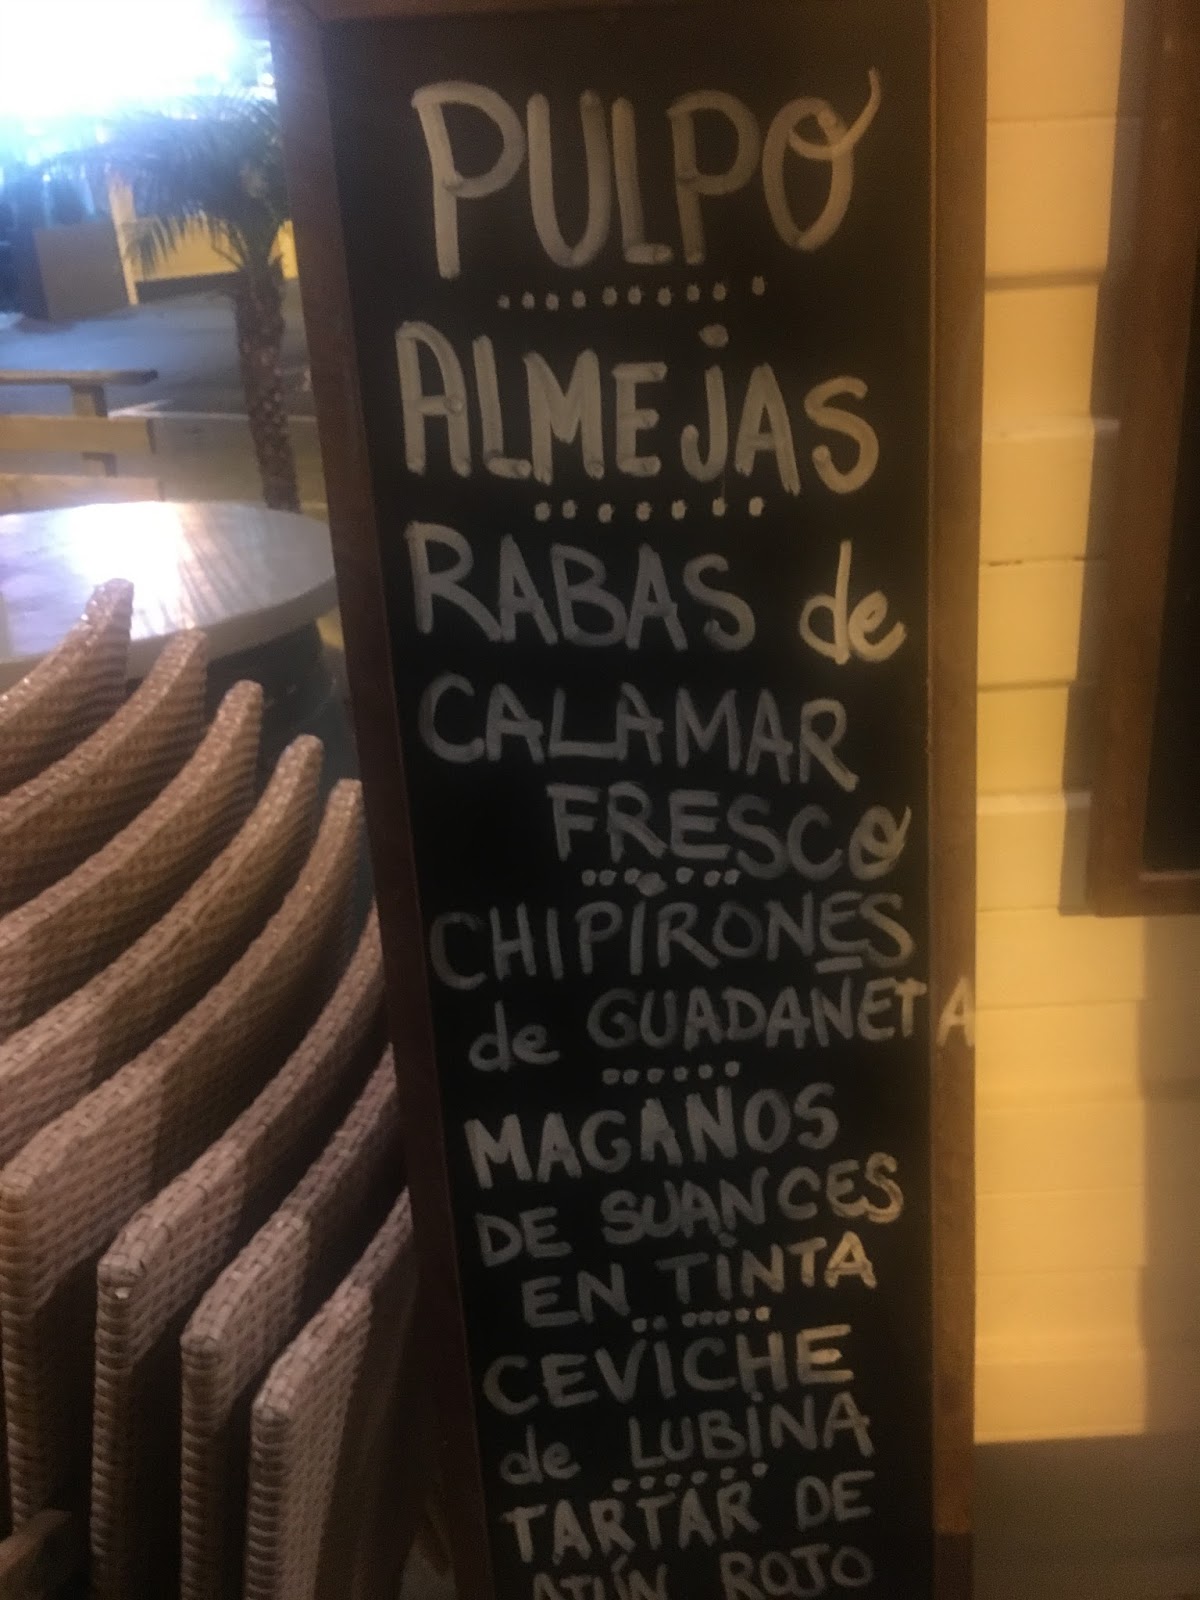 PULPO
ALMEJAS
RABAS de
CALAMAR
FRESCO
CHIPIRONES
de GUADANETA
MAGANOS
DE SUANCES
EN TINTA
CEVICHE
de LUBINA
TARTAR DE
ATÚN ROJO